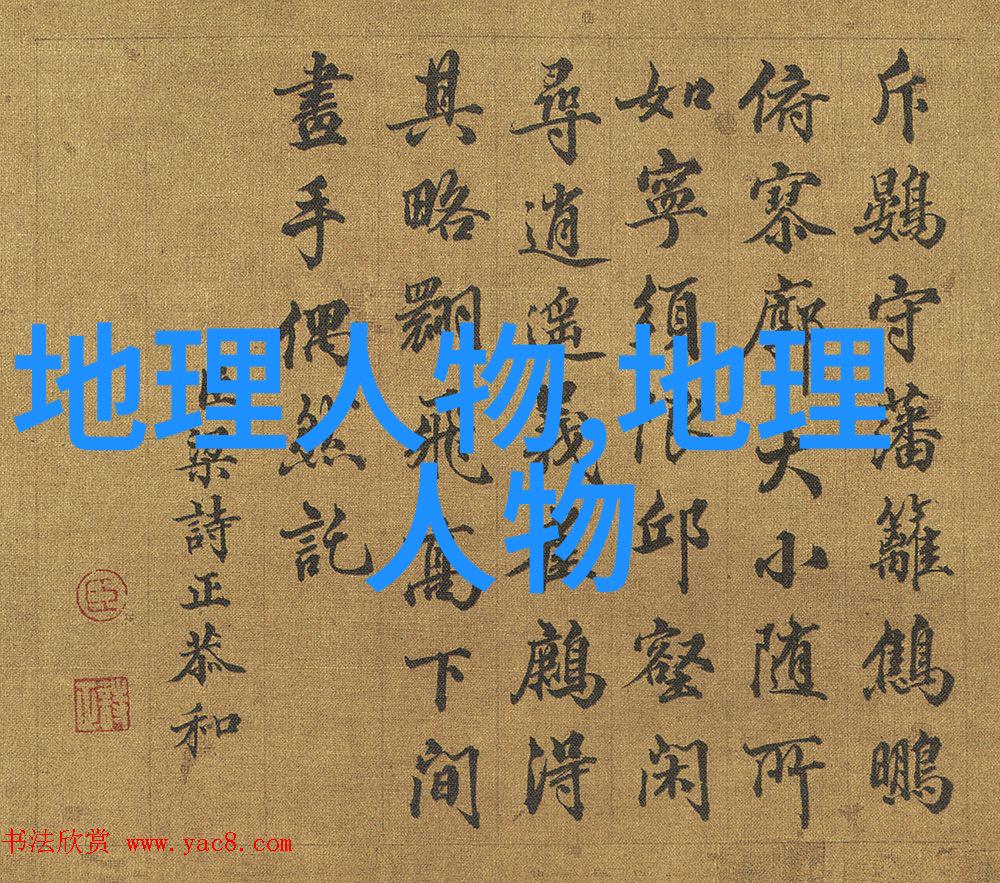 斥鷃守藩籬鷦鵬
俯寥廓大小随所
如寧須邱壑閑
尋逍遥義得
其略翾飛高下間
畫手偶然託
臣梁詩正恭和
臣
地理人物,地理
人物
书法欣赏 www.yac8.com